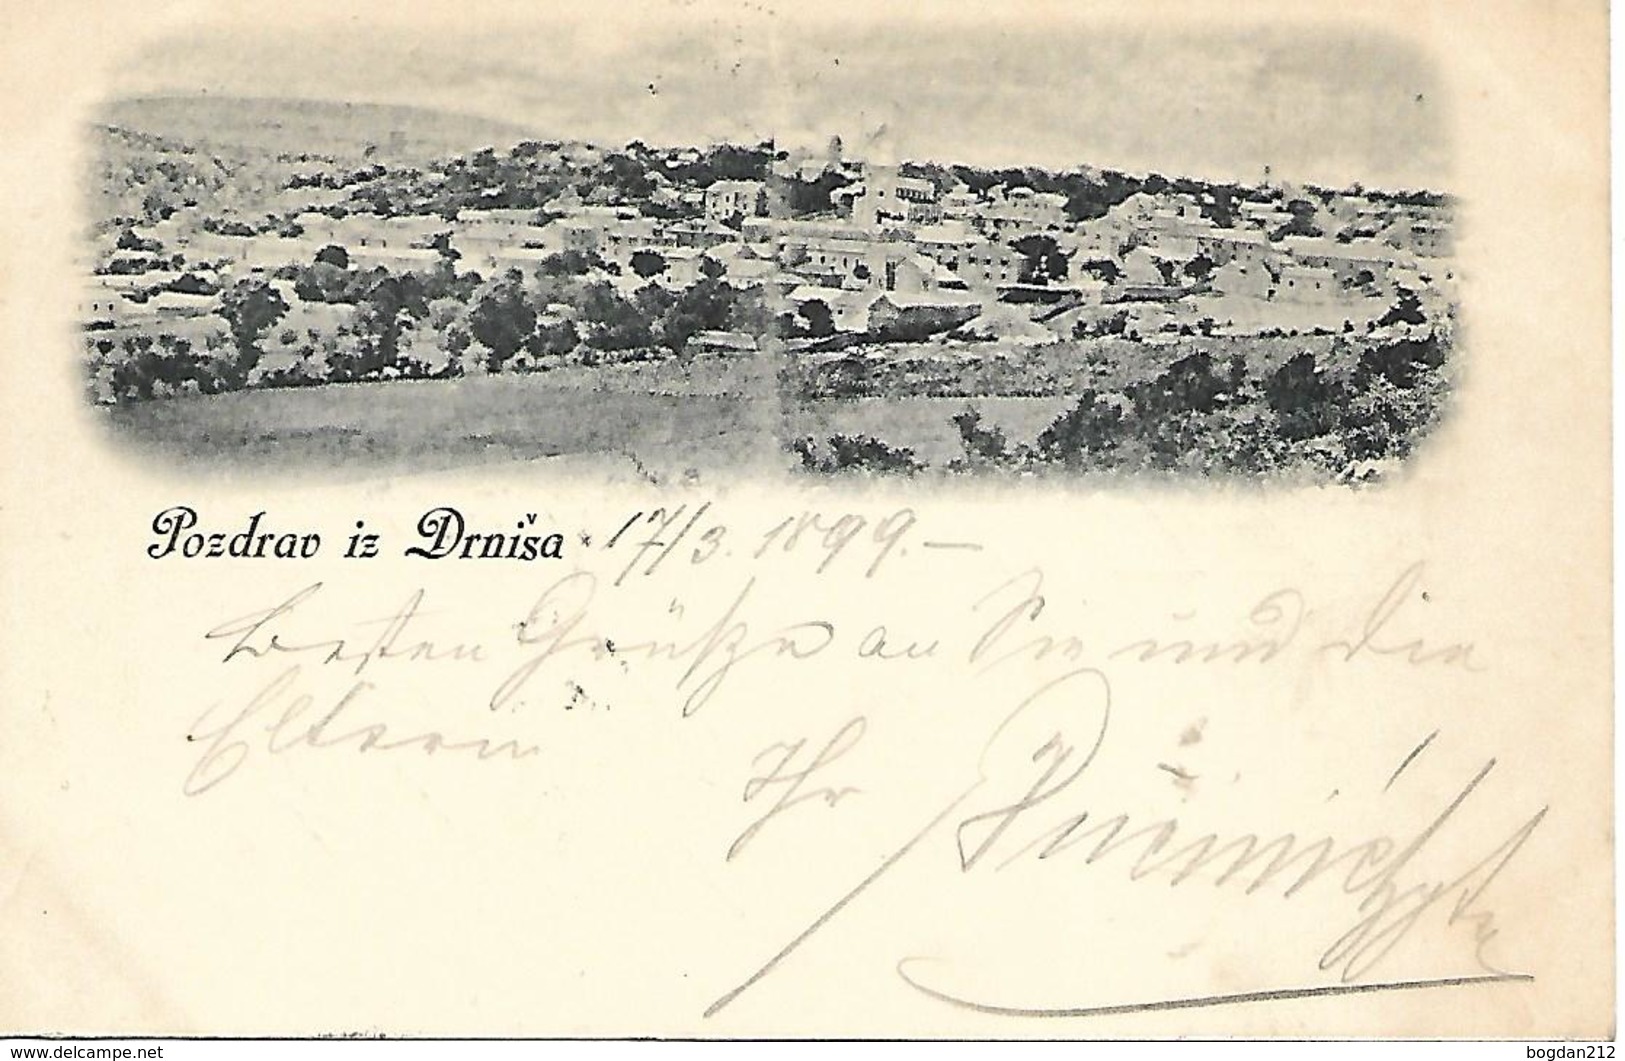 Pozdrav iz Drniša 17/3. 1899.—
Besten Grüße an Sie und die
Eltern
Ihr
www.delcampe.net
bogdan212